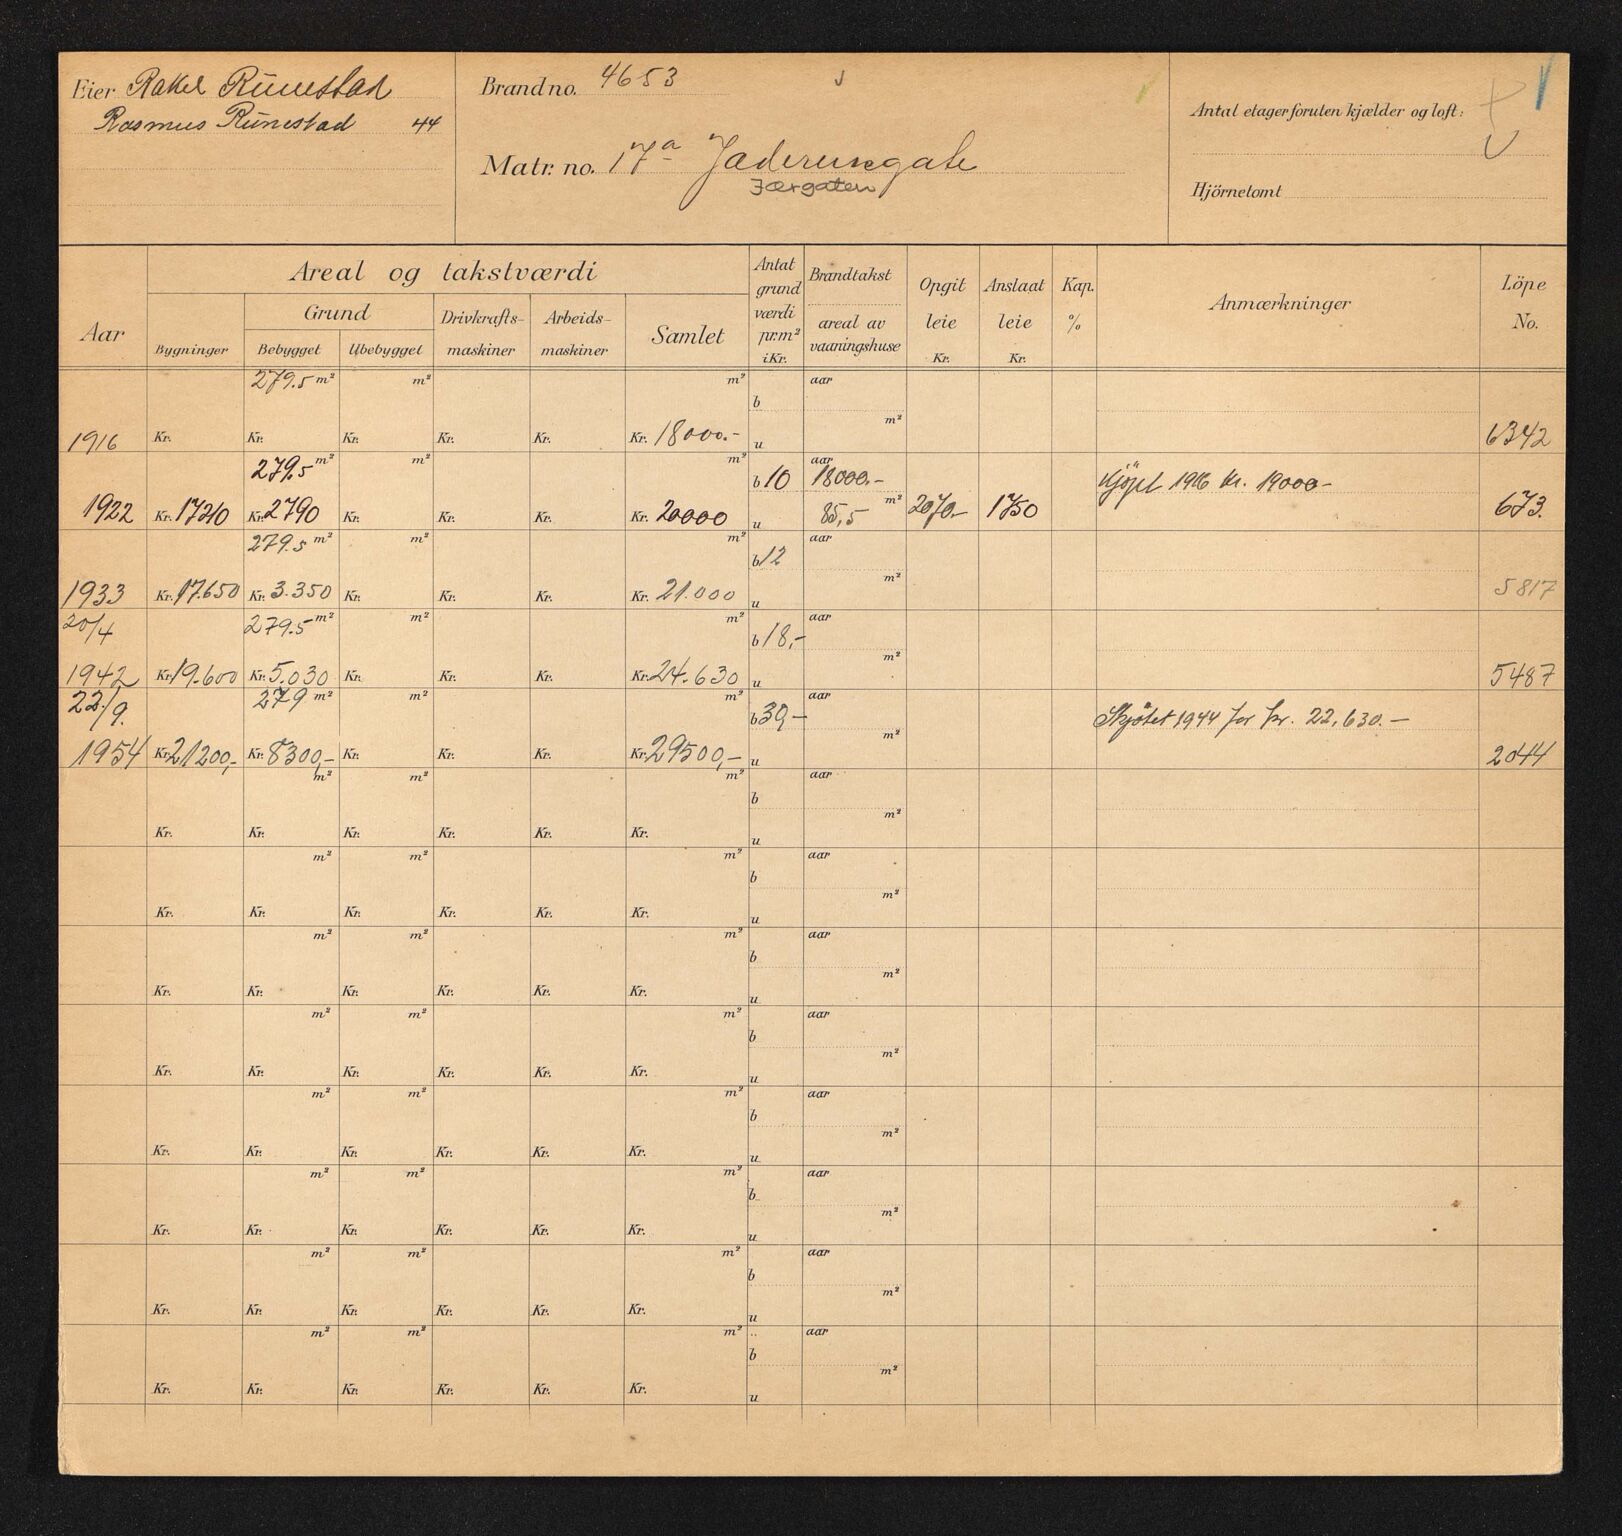 Eier Rakel Runestad
Rasmus Runestad 44
Brand no. 4653
Matr. no. 17a Jæderensgate
Jærgaten
Antal etager foruten kjælder og loft:
Hjörnetomt
Aar
Areal og takstværdi
Bygninger
Grund
Bebygget
Ubebygget
Drivkrafts-
maskiner
Arbeids-
maskiner
Samlet
Antat
grund
værdi
pr.m²
i Kr.
Brandtakst
areal av
vaaningshuse
Opgit
leie
Kr.
Anslaat
leie
Kr.
Kap.
%
Anmærkninger
Löpe
No.
279.5 m² m² m² aar
b
m²
1916 Kr. Kr. Kr. Kr. Kr. Kr. 18000.- u 6342
279.5 m² m² m² aar
b 10 18000.- Kjöpt 1916 kr. 19000-
m²
1922 Kr. 17210 Kr. 2790 Kr. Kr. Kr. Kr. 20000 u 85,5 2070.- 1750 673.
279.5 m² m² m² aar
b 12
m²
1933 Kr. 17.650 Kr. 3.350 Kr. Kr. Kr. Kr. 21.000 u 5817
20/4 279.5 m² m² m² aar
b 18,-
m²
1942 Kr. 19.600 Kr. 5.030 Kr. Kr. Kr. Kr. 24.630 u 5487
22./9. 279 m² m² m² aar
b 30,- Skjøtet 1944 for kr. 22,630.-
m²
1954 Kr. 21200,- Kr. 8300,- Kr. Kr. Kr. Kr. 29500,- u 2044
m² m² m² aar
b
m²
Kr. Kr. Kr. Kr. Kr. Kr. u
m² m² m² aar
b
m²
Kr. Kr. Kr. Kr. Kr. Kr. u
m² m² m² aar
b
m²
Kr. Kr. Kr. Kr. Kr. Kr. u
m² m² m² aar
b
m²
Kr. Kr. Kr. Kr. Kr. Kr. u
m² m² m² aar
b
m²
Kr. Kr. Kr. Kr. Kr. Kr. u
m² m² m² aar
b
m²
Kr. Kr. Kr. Kr. Kr. Kr. u
m² m² m² aar
b
m²
Kr. Kr. Kr. Kr. Kr. Kr. u
m² m² m² aar
b
m²
Kr. Kr. Kr. Kr. Kr. Kr. u